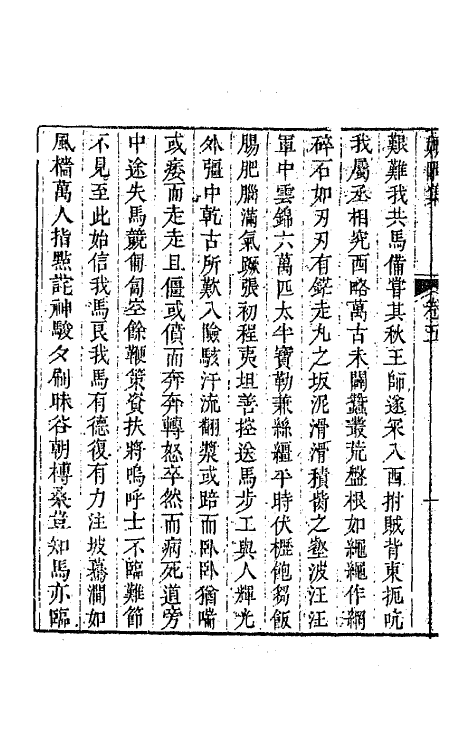 艱難我共馬備嘗其秋王師遂罙入西拊賊背東扼吭
我屬丞相究西略萬古未闢蠶叢荒盤根如繩繩作網
碎石如刃刃有鋩走丸之坂泥滑滑積崳之壑波汪汪
軍中雲錦六萬匹太半寶勒兼絲繮平時伏櫪飽芻飯
腸肥腦滿氣蹶張初程夷坦善控送馬步工與人輝光
外彊中乾古所歎入險駭汗流翻漿或踣而臥臥猶喘
或痿而走走且僵或僨而奔奔轉怒卒然而病死道旁
中途失馬競匍匐空餘鞭策資扶將嗚呼士不臨難節
不見至此始信我馬良我馬有德復有力注坡驀澗如
風檣萬人指點詫神駿夕刷昧谷朝榑桑豈知馬亦臨
集
卷五
一